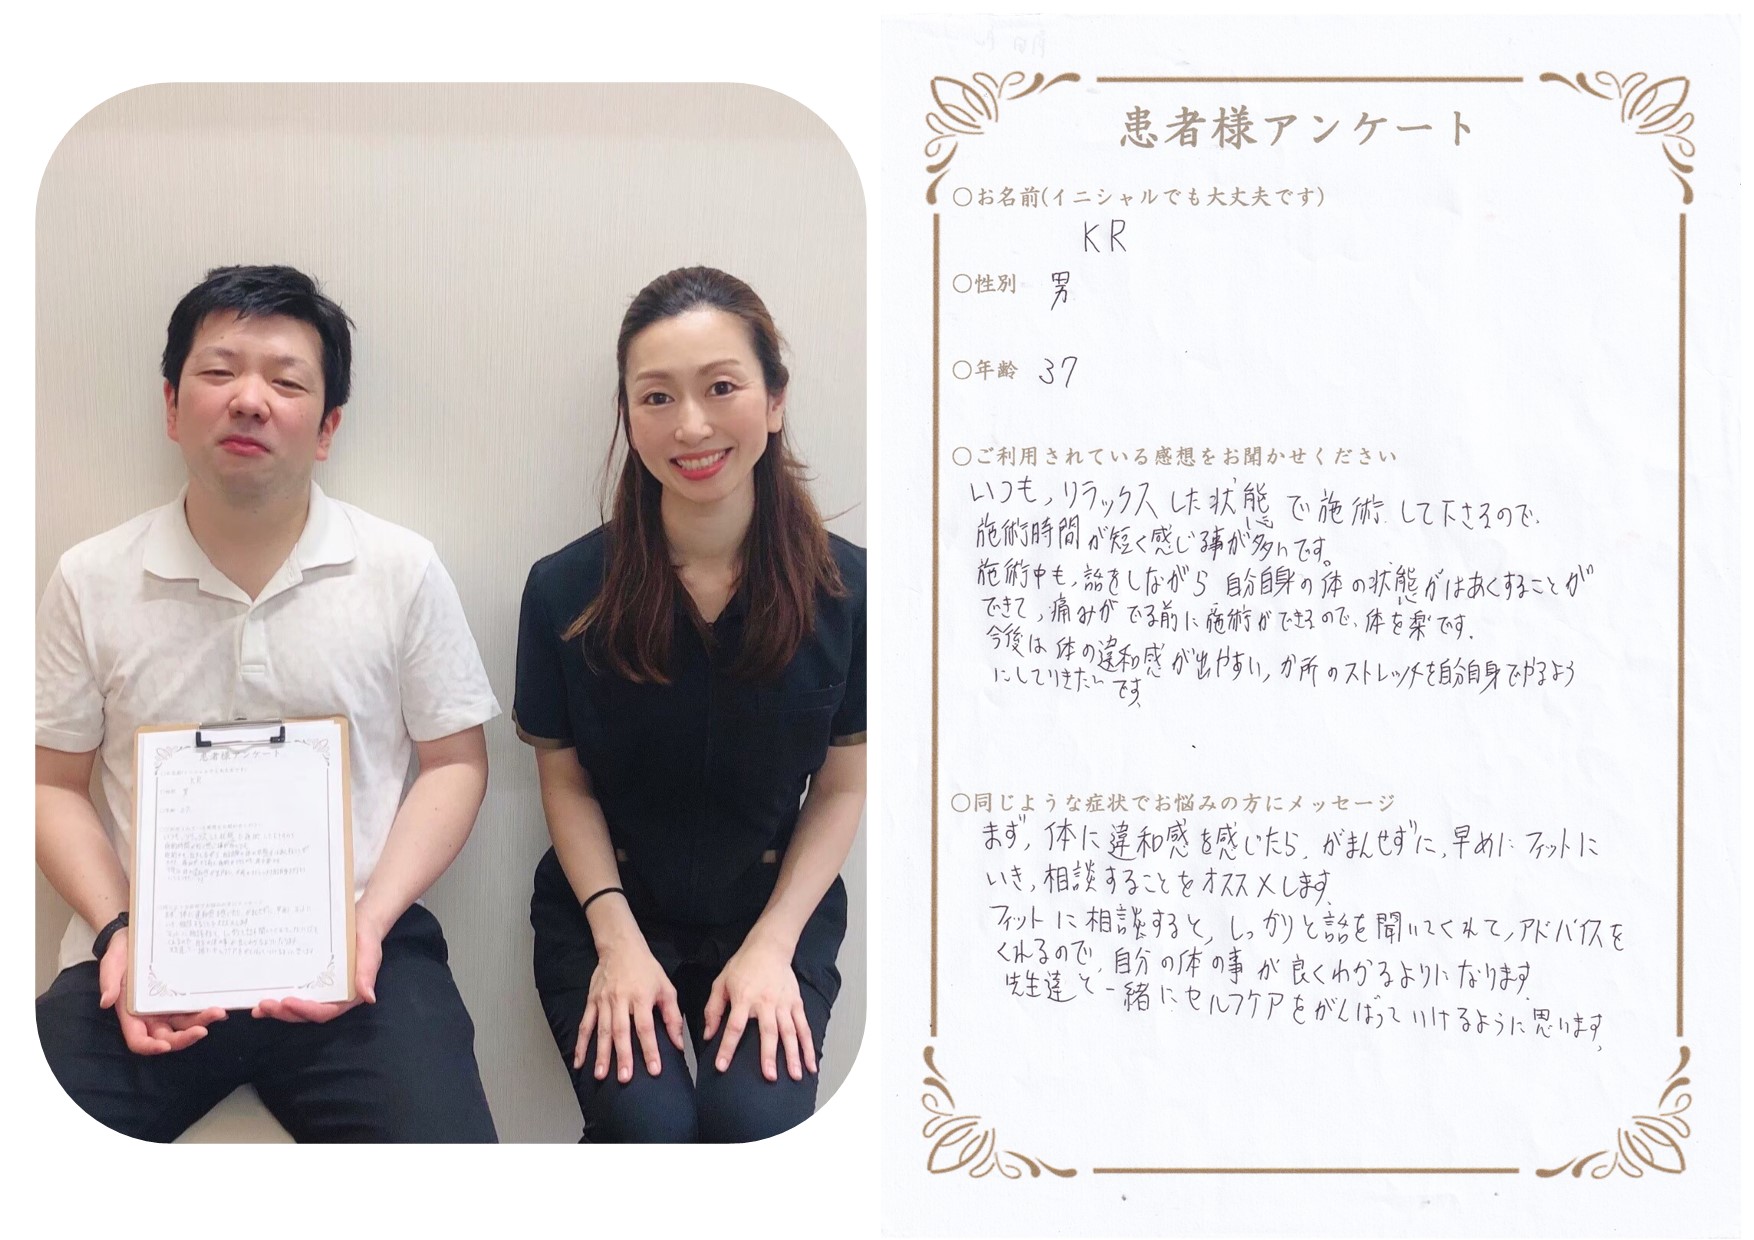 患者様アンケート
○お名前(イニシャルでも大丈夫です)
KR
○性別 男
○年齢 37
○ご利用されている感想をお聞かせください
いつも,リラックスした状態で施術して下さるので、
施術時間が短く感じる事が多いです。
施術中も,話をしながら自分自身の体の状態がはあくすることが
できて,痛みがでる前に施術ができるので、体を楽です。
今後は体の違和感が出やすい,か所のストレッチを自分自身でやるよう
にしていきたいです。
○同じような症状でお悩みの方にメッセージ
まず,体に違和感を感じたら,がまんせずに,早めにフィットに
いき,相談することをオススメします。
フィットに相談すると,しっかりと話を聞いてくれて,アドバイスを
くれるので、自分の体の事が良くわかるようになります。
先生達と一緒にセルフケアをがんばっていけるように思います。